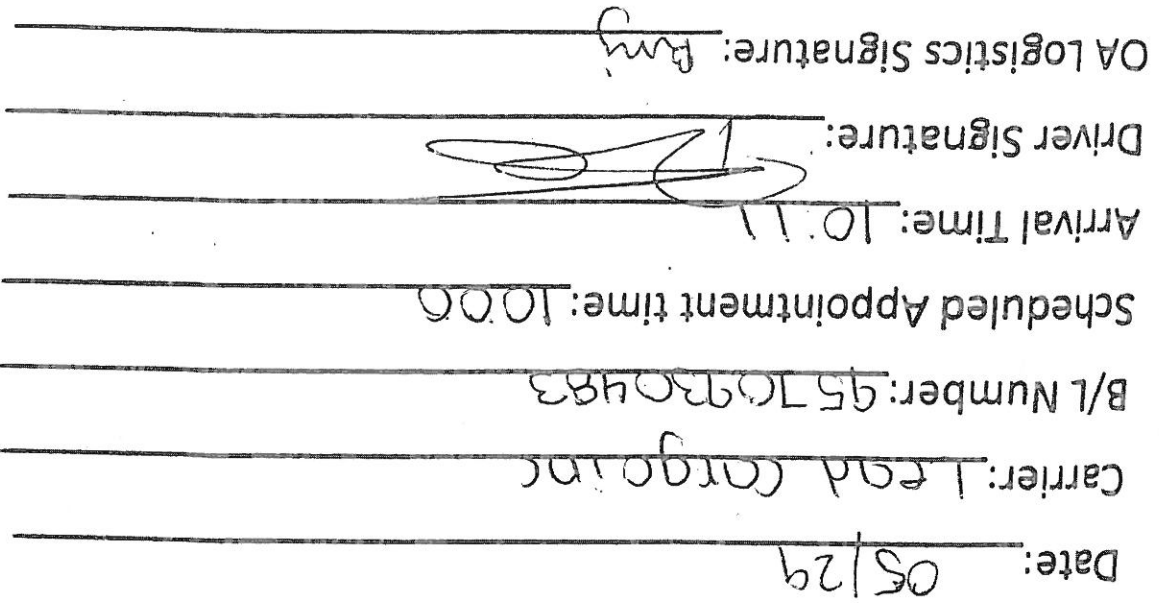 Date: 05/29
Carrier: Lead Cargo inc
B/L Number: 9570930483
Scheduled Appointment time: 1000
Arrival Time: 10:11
Driver Signature:
OA Logistics Signature: